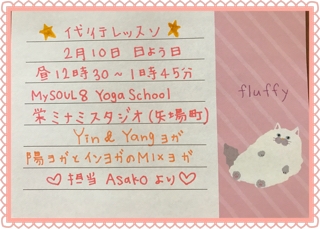 ⭐代行レッスン⭐
2月10日 日よう日
昼12時30～1時45分
MySOUL8 Yoga School
栄ミナミスタジオ(矢場町)
Yin & Yang ヨガ
陽ヨガとインヨガのMixヨガ
♡担当 Asakoより♡
fluffy